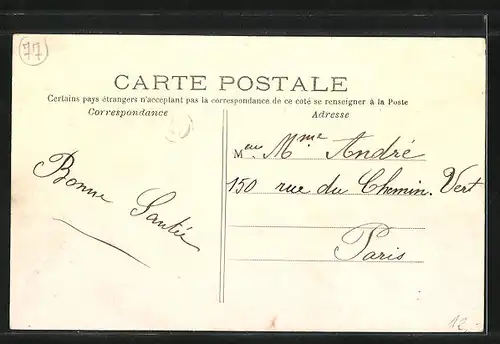 77
CARTE POSTALE
Certains pays étrangers n'acceptant pas la correspondance de ce coté se renseigner à la Poste
Correspondance
Adresse
Bonne Santée
M Mme André
150 rue du Chemin. Vert
Paris
12.-